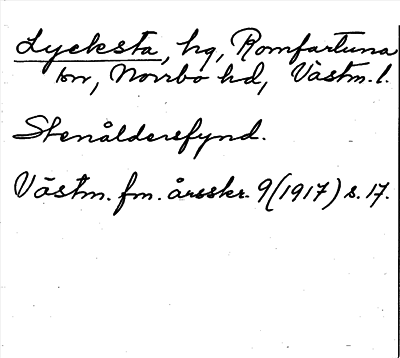 Lycksta, hg, Romfartuna
sn, Norrbo hd, Västm. l.
Stenåldersfynd.
Västm. fm. årsskr. 9(1917) s. 17.